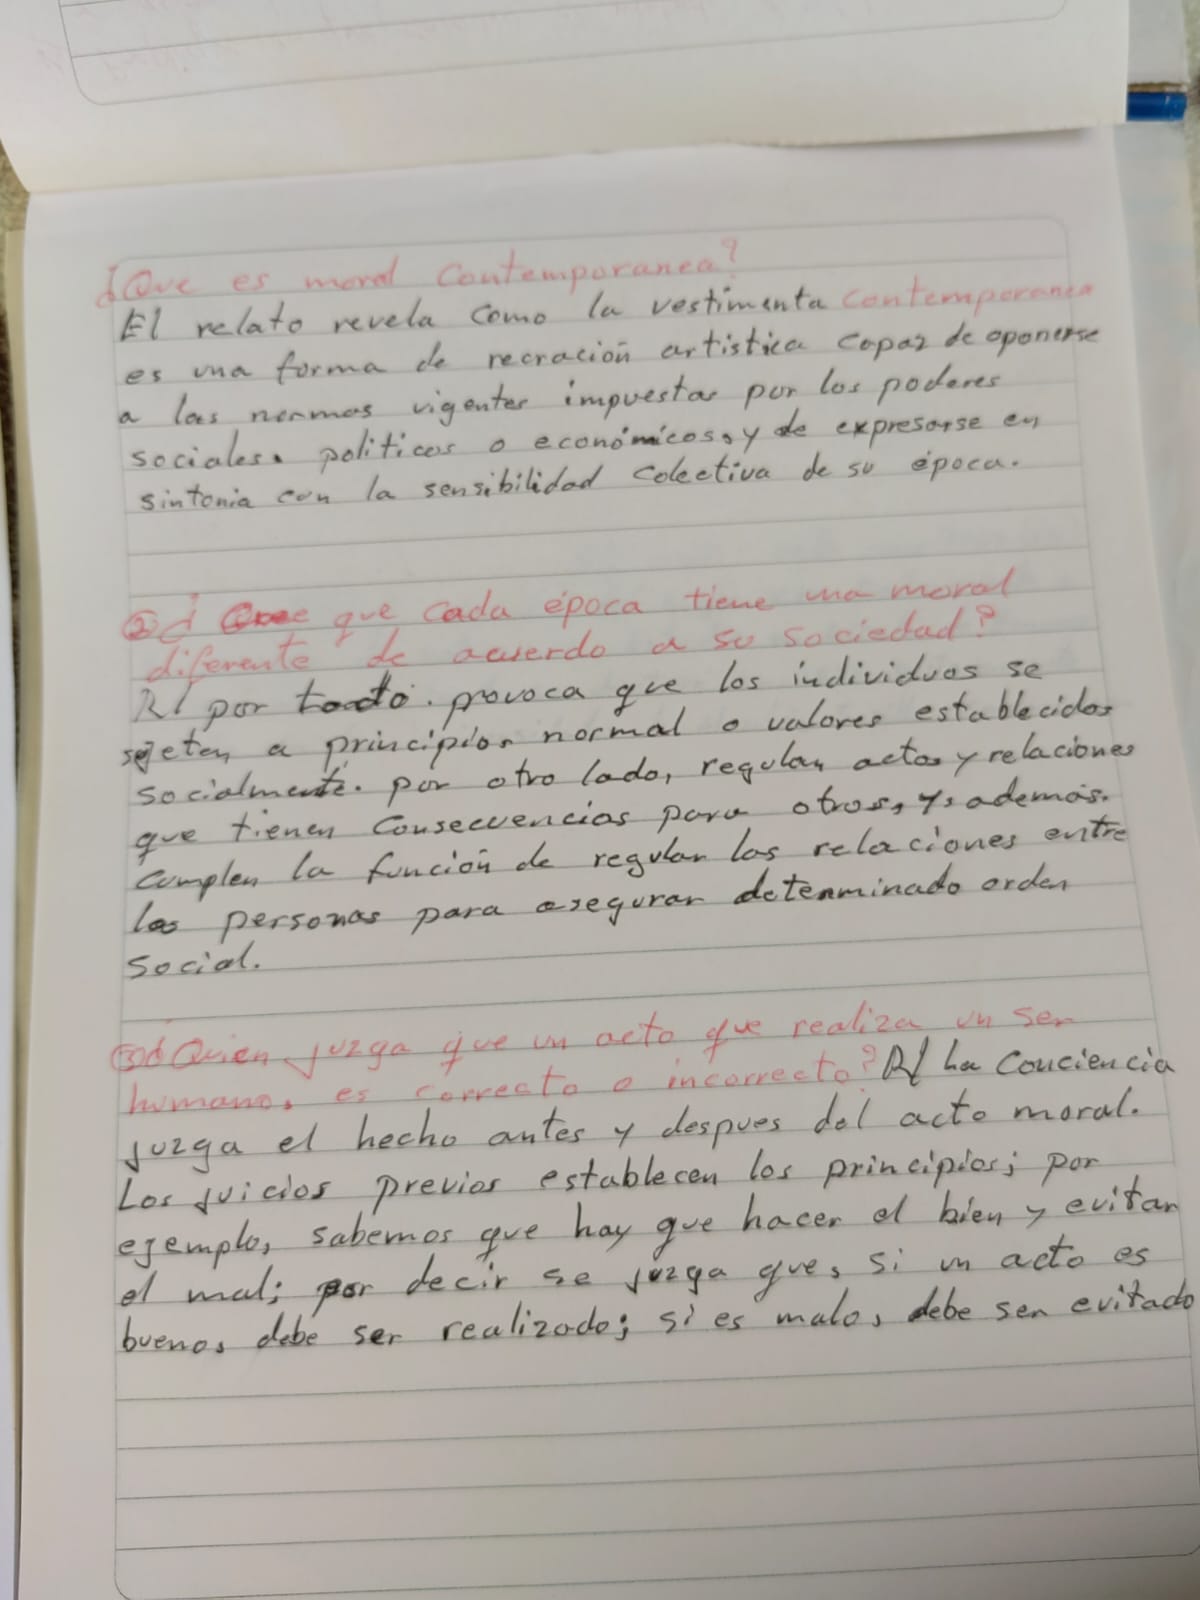 ¿Que es moral Contemporanea?
El relato revela como la vestimenta contemporanea
es una forma de recración artistica capaz de oponerse
a las normas vigentes impuestas por los poderes
sociales. politicos o económicos, y de expresarse en
sintonia con la sensibilidad colectiva de su época.
② ¿ Cree que cada época tiene una moral
diferente de acuerdo a su sociedad?
R/ por tanto. provoca que los individuos se
sejeten a principios normal o valores establecidos
socialmente. por otro lado, regulan actos y relaciones
que tienen consecuencias para otros, y, además.
cumplen la función de regular las relaciones entre
las personas para asegurar determinado orden
social.
③ ¿ Quien, juzga que un acto que realiza un ser
humano, es correcto o incorrecto? R/ La conciencia
juzga el hecho antes y despues del acto moral.
Los juicios previos establecen los principios; por
ejemplo, sabemos que hay que hacer el bien y evitar
el mal; por decir se juzga que, si un acto es
bueno, debe ser realizado; si es malo, debe ser evitado